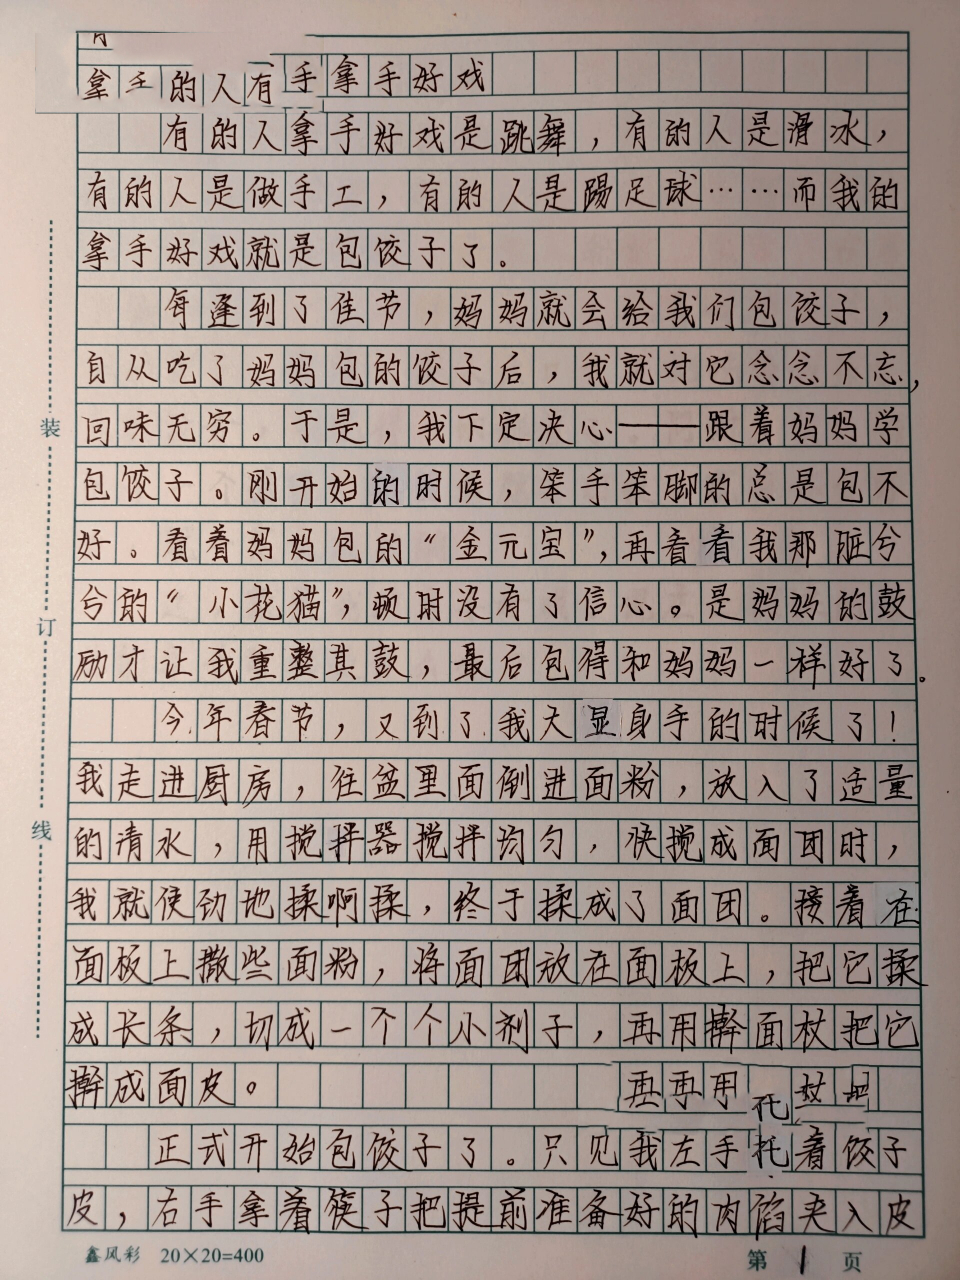 拿手的人有手拿手好戏
有的人拿手好戏是跳舞，有的人是滑冰，
有的人是做手工，有的人是踢足球……而我的
拿手好戏就是包饺子了。
每逢到了佳节，妈妈就会给我们包饺子，
自从吃了妈妈包的饺子后，我就对它念念不忘，
回味无穷。于是，我下定决心——跟着妈妈学
包饺子。刚开始的时候，笨手笨脚的总是包不
好。看着妈妈包的“金元宝”，再看看我那脏兮
兮的“小花猫”，顿时没有了信心。是妈妈的鼓
励才让我重整其鼓，最后包得和妈妈一样好了。
今年春节，又到了我大显身手的时候了！
我走进厨房，往盆里面倒进面粉，放入了适量
的清水，用搅拌器搅拌均匀，快搅成面团时，
我就使劲地揉啊揉，终于揉成了面团。接着在
面板上撒些面粉，将面团放在面板上，把它揉
成长条，切成一个个小剂子，再用擀面杖把它
擀成面皮。 再再用托杖把
正式开始包饺子了。只见我左手托着饺子
皮，右手拿着筷子把提前准备好的肉馅夹入皮
装
订
线
鑫风彩 20×20=400
第1页